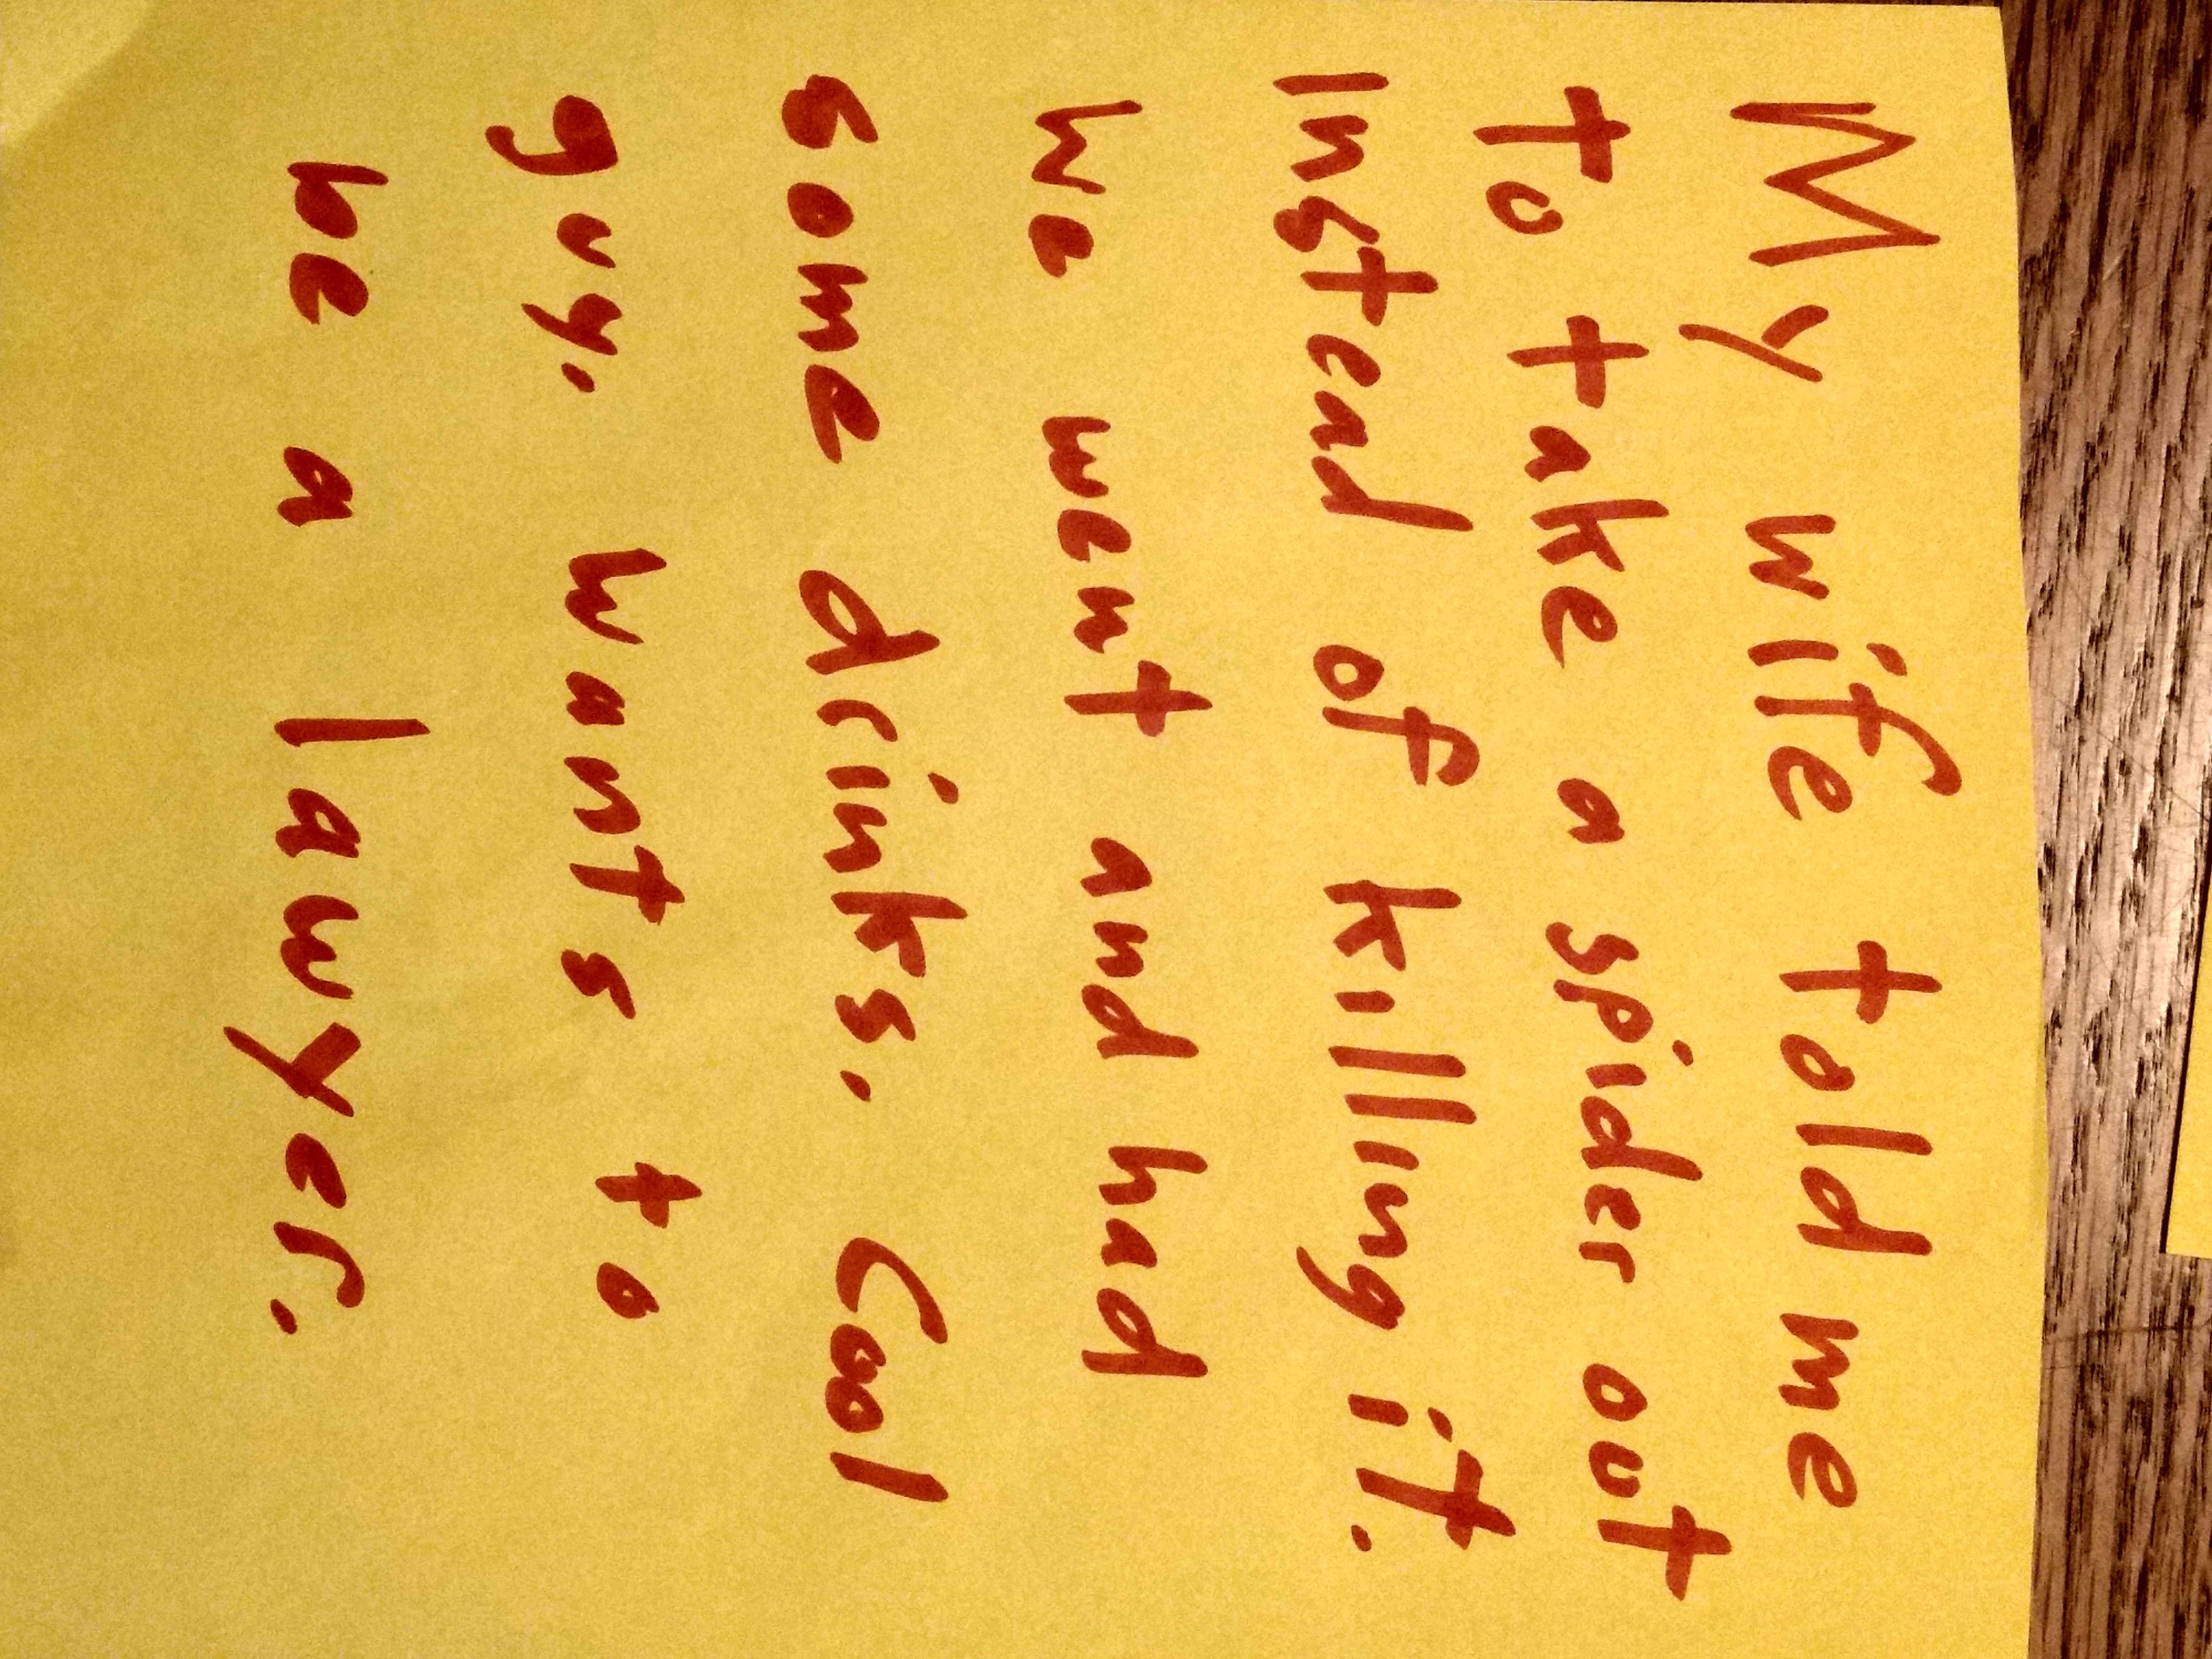 My wife told me
to take a spider out
instead of killing it.
We went and had
some drinks. Cool
guy. Wants to
be a lawyer.